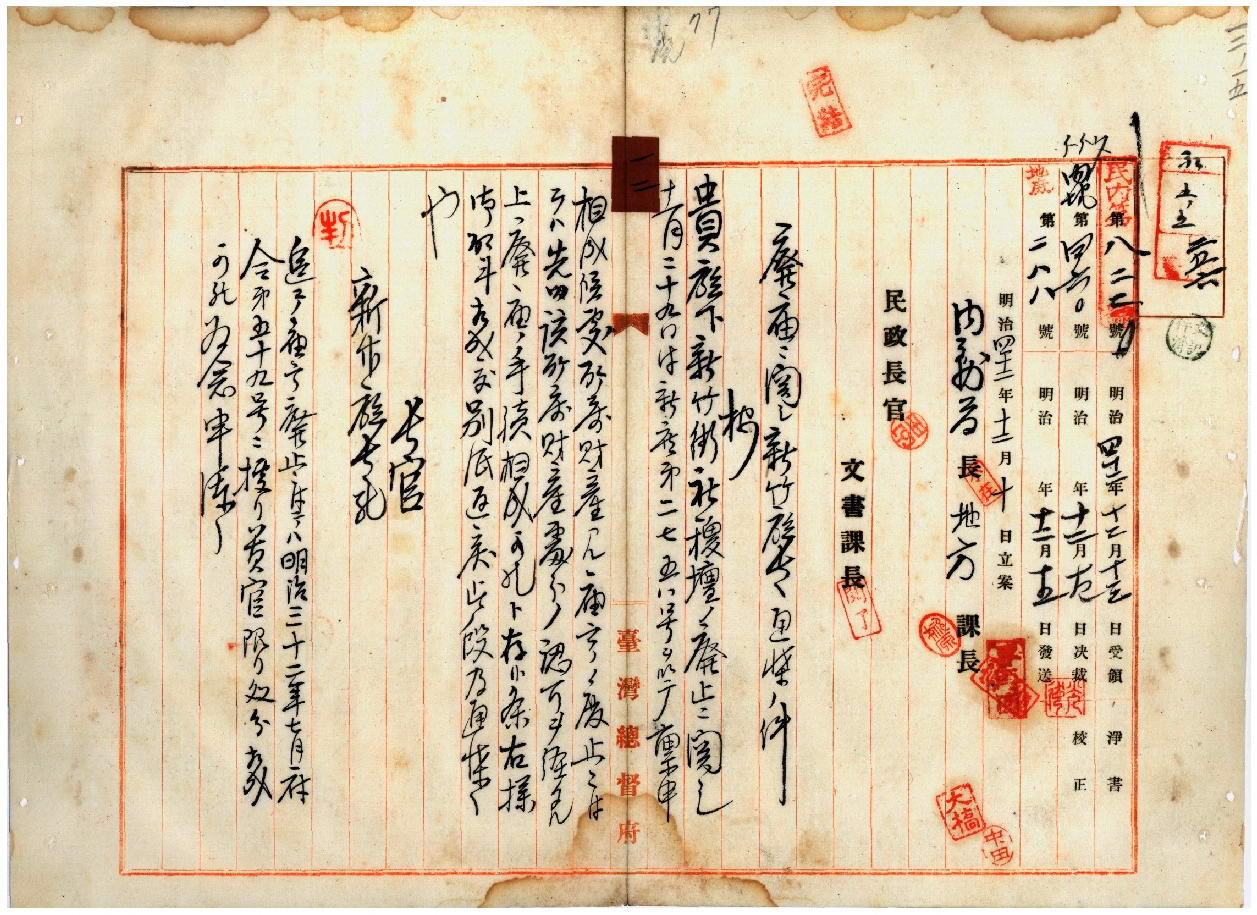 77
一三、一五
完結
永
五、五
民內第
第八二七號 明治四十二年十二月十三日受領 淨書
第四六〇號 明治 年十二月十五日決裁 校正
地 第二八八號 明治 年十二月十五日發送
明治四十二年十二月十日立案
內務局長 地方課長
民政長官
文書課長
閱了
廢廟ニ關シ新竹廳長ヘ通牒ノ件
按
貴廳下新竹街社稷壇ノ廢止ニ關シ
十一月二十九日付新庶第二七五八号ヲ以テ稟申
相成候處所屬財產アル廟宇ノ廢止ニ付
テハ先以該所屬財產處分ノ認可ヲ經タル
上ニ廢廟ノ手續相成可然ト存候條右樣
御取斗相成度別紙返戾此段及通牒候
也
長官
新竹廳長宛
追テ廟宇廢止ノ件ハ明治三十二年七月府
令第五十九号ニ據リ貴官限リ處分相成
可然為念申添候
一二
臺灣總督府
大槁
中田